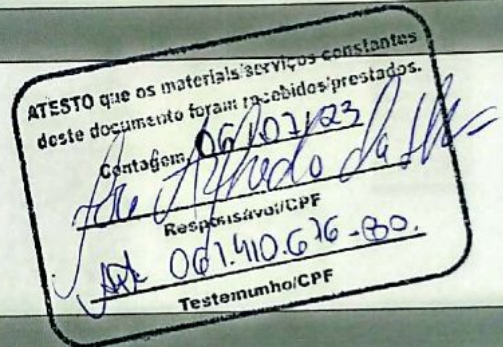 ATESTO que os materiais/serviços constantes
deste documento foram recebidos/prestados.
Contagem, 06/07/23
Alfredo da
Responsável/CPF
061.410.676-80.
Testemunho/CPF